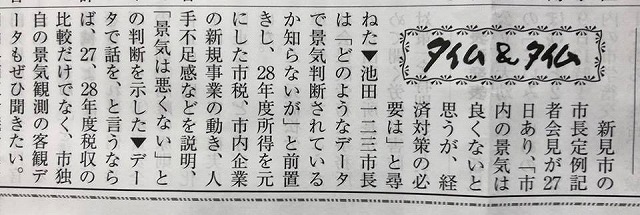 タイム&タイム
新見市の
市長定例記
者会見が27
日あり、「市
内の景気は
良くないと
思うが、経
済対策の必
要は」と尋
ねた▼池田一二三市長
は「どのようなデータ
で景気判断されている
か知らないが」と前置
きし、28年度所得を元
にした市税、市内企業
の新規事業の動き、人
手不足感などを説明、
「景気は悪くない」と
の判断を示した▼デー
タで話を、と言うなら
ば、27、28年度税収の
比較だけでなく、市独
自の景気観測の客観デ
ータもぜひ聞きたい。